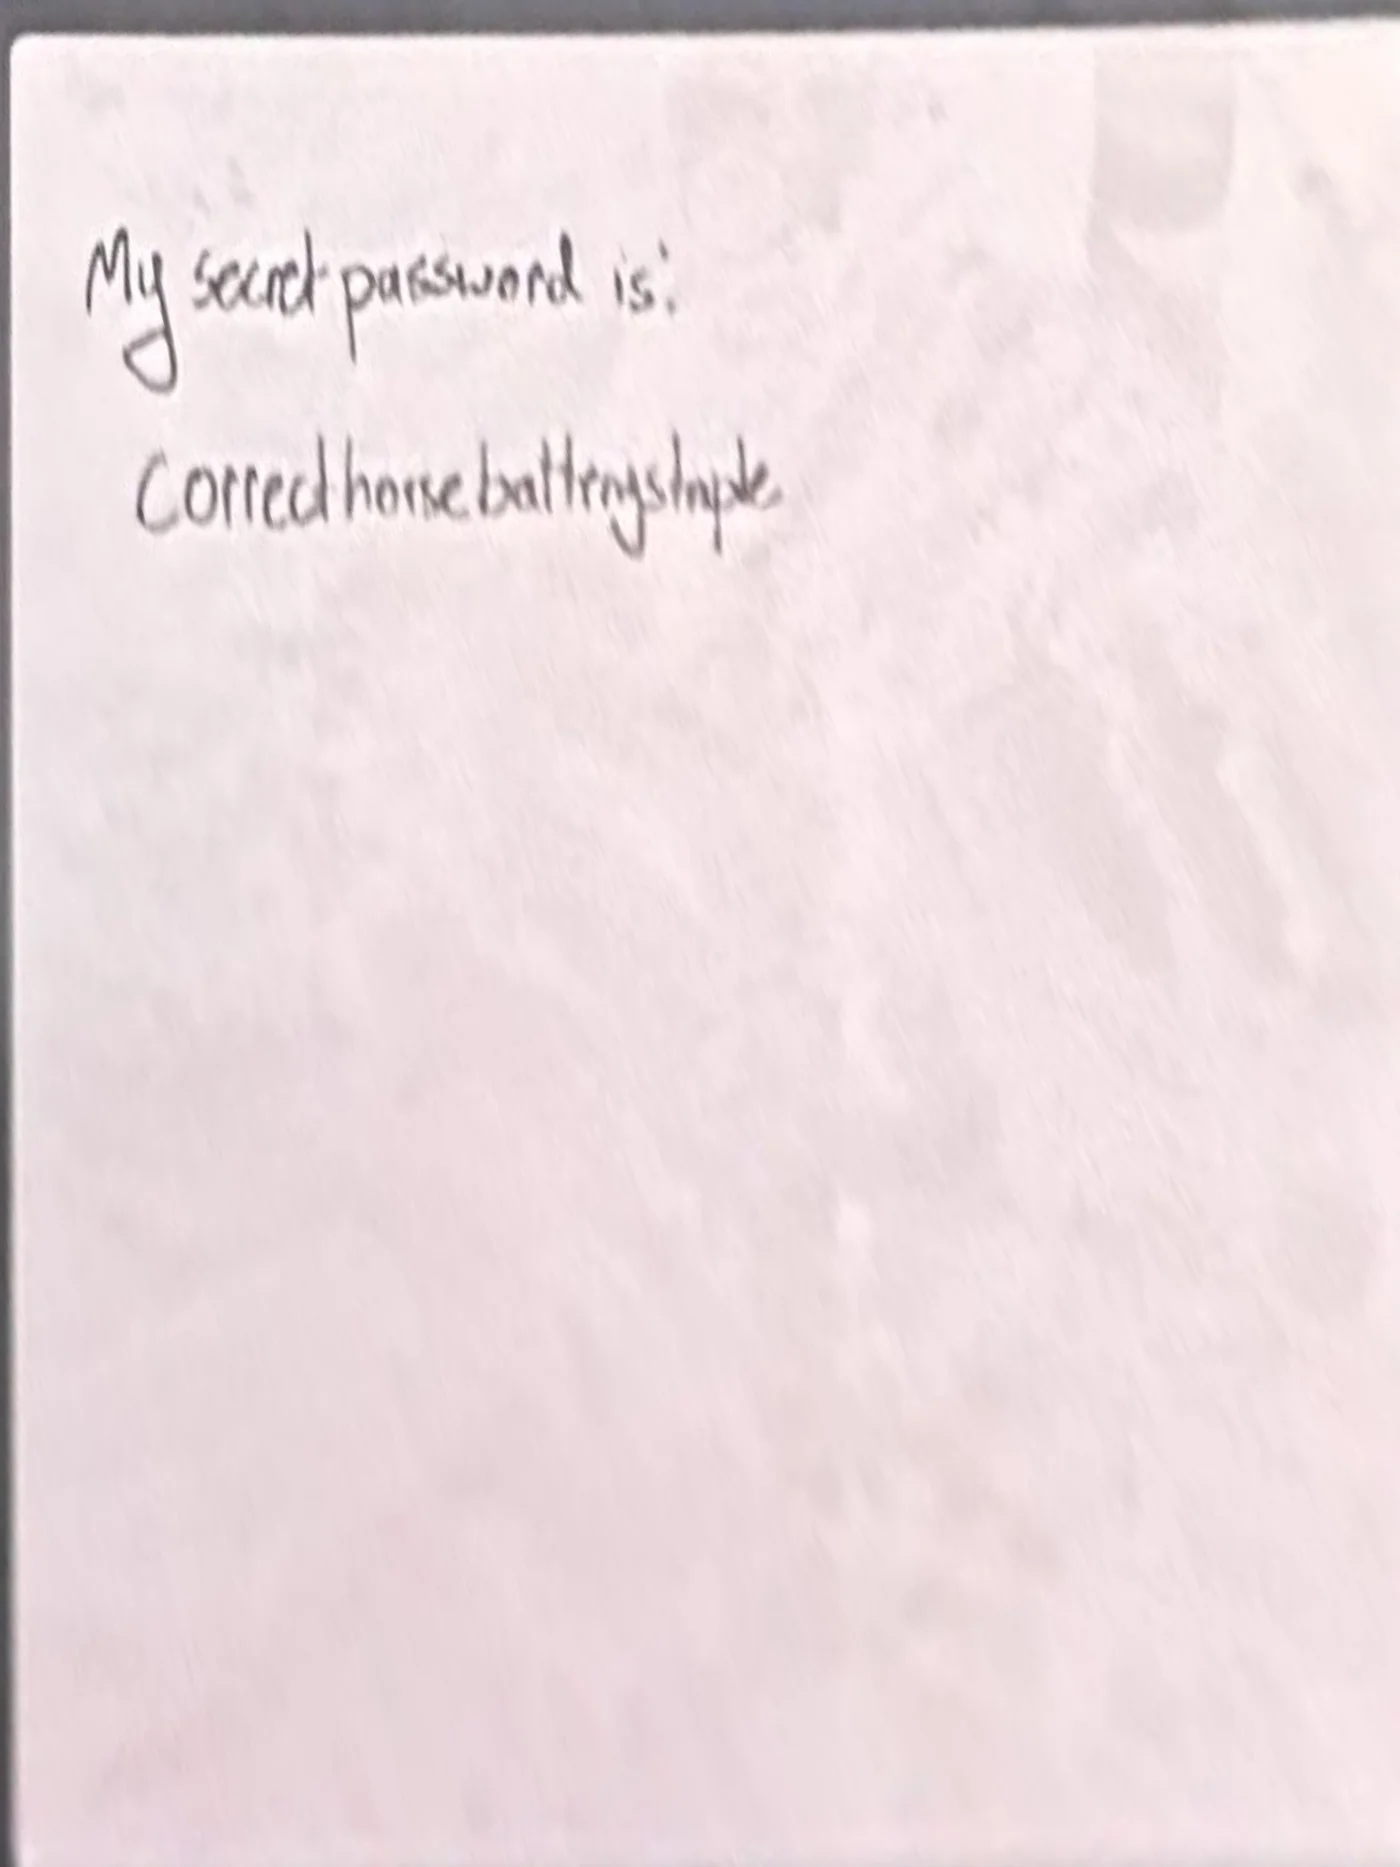 My secret password is:
Correcthorsebatterystaple